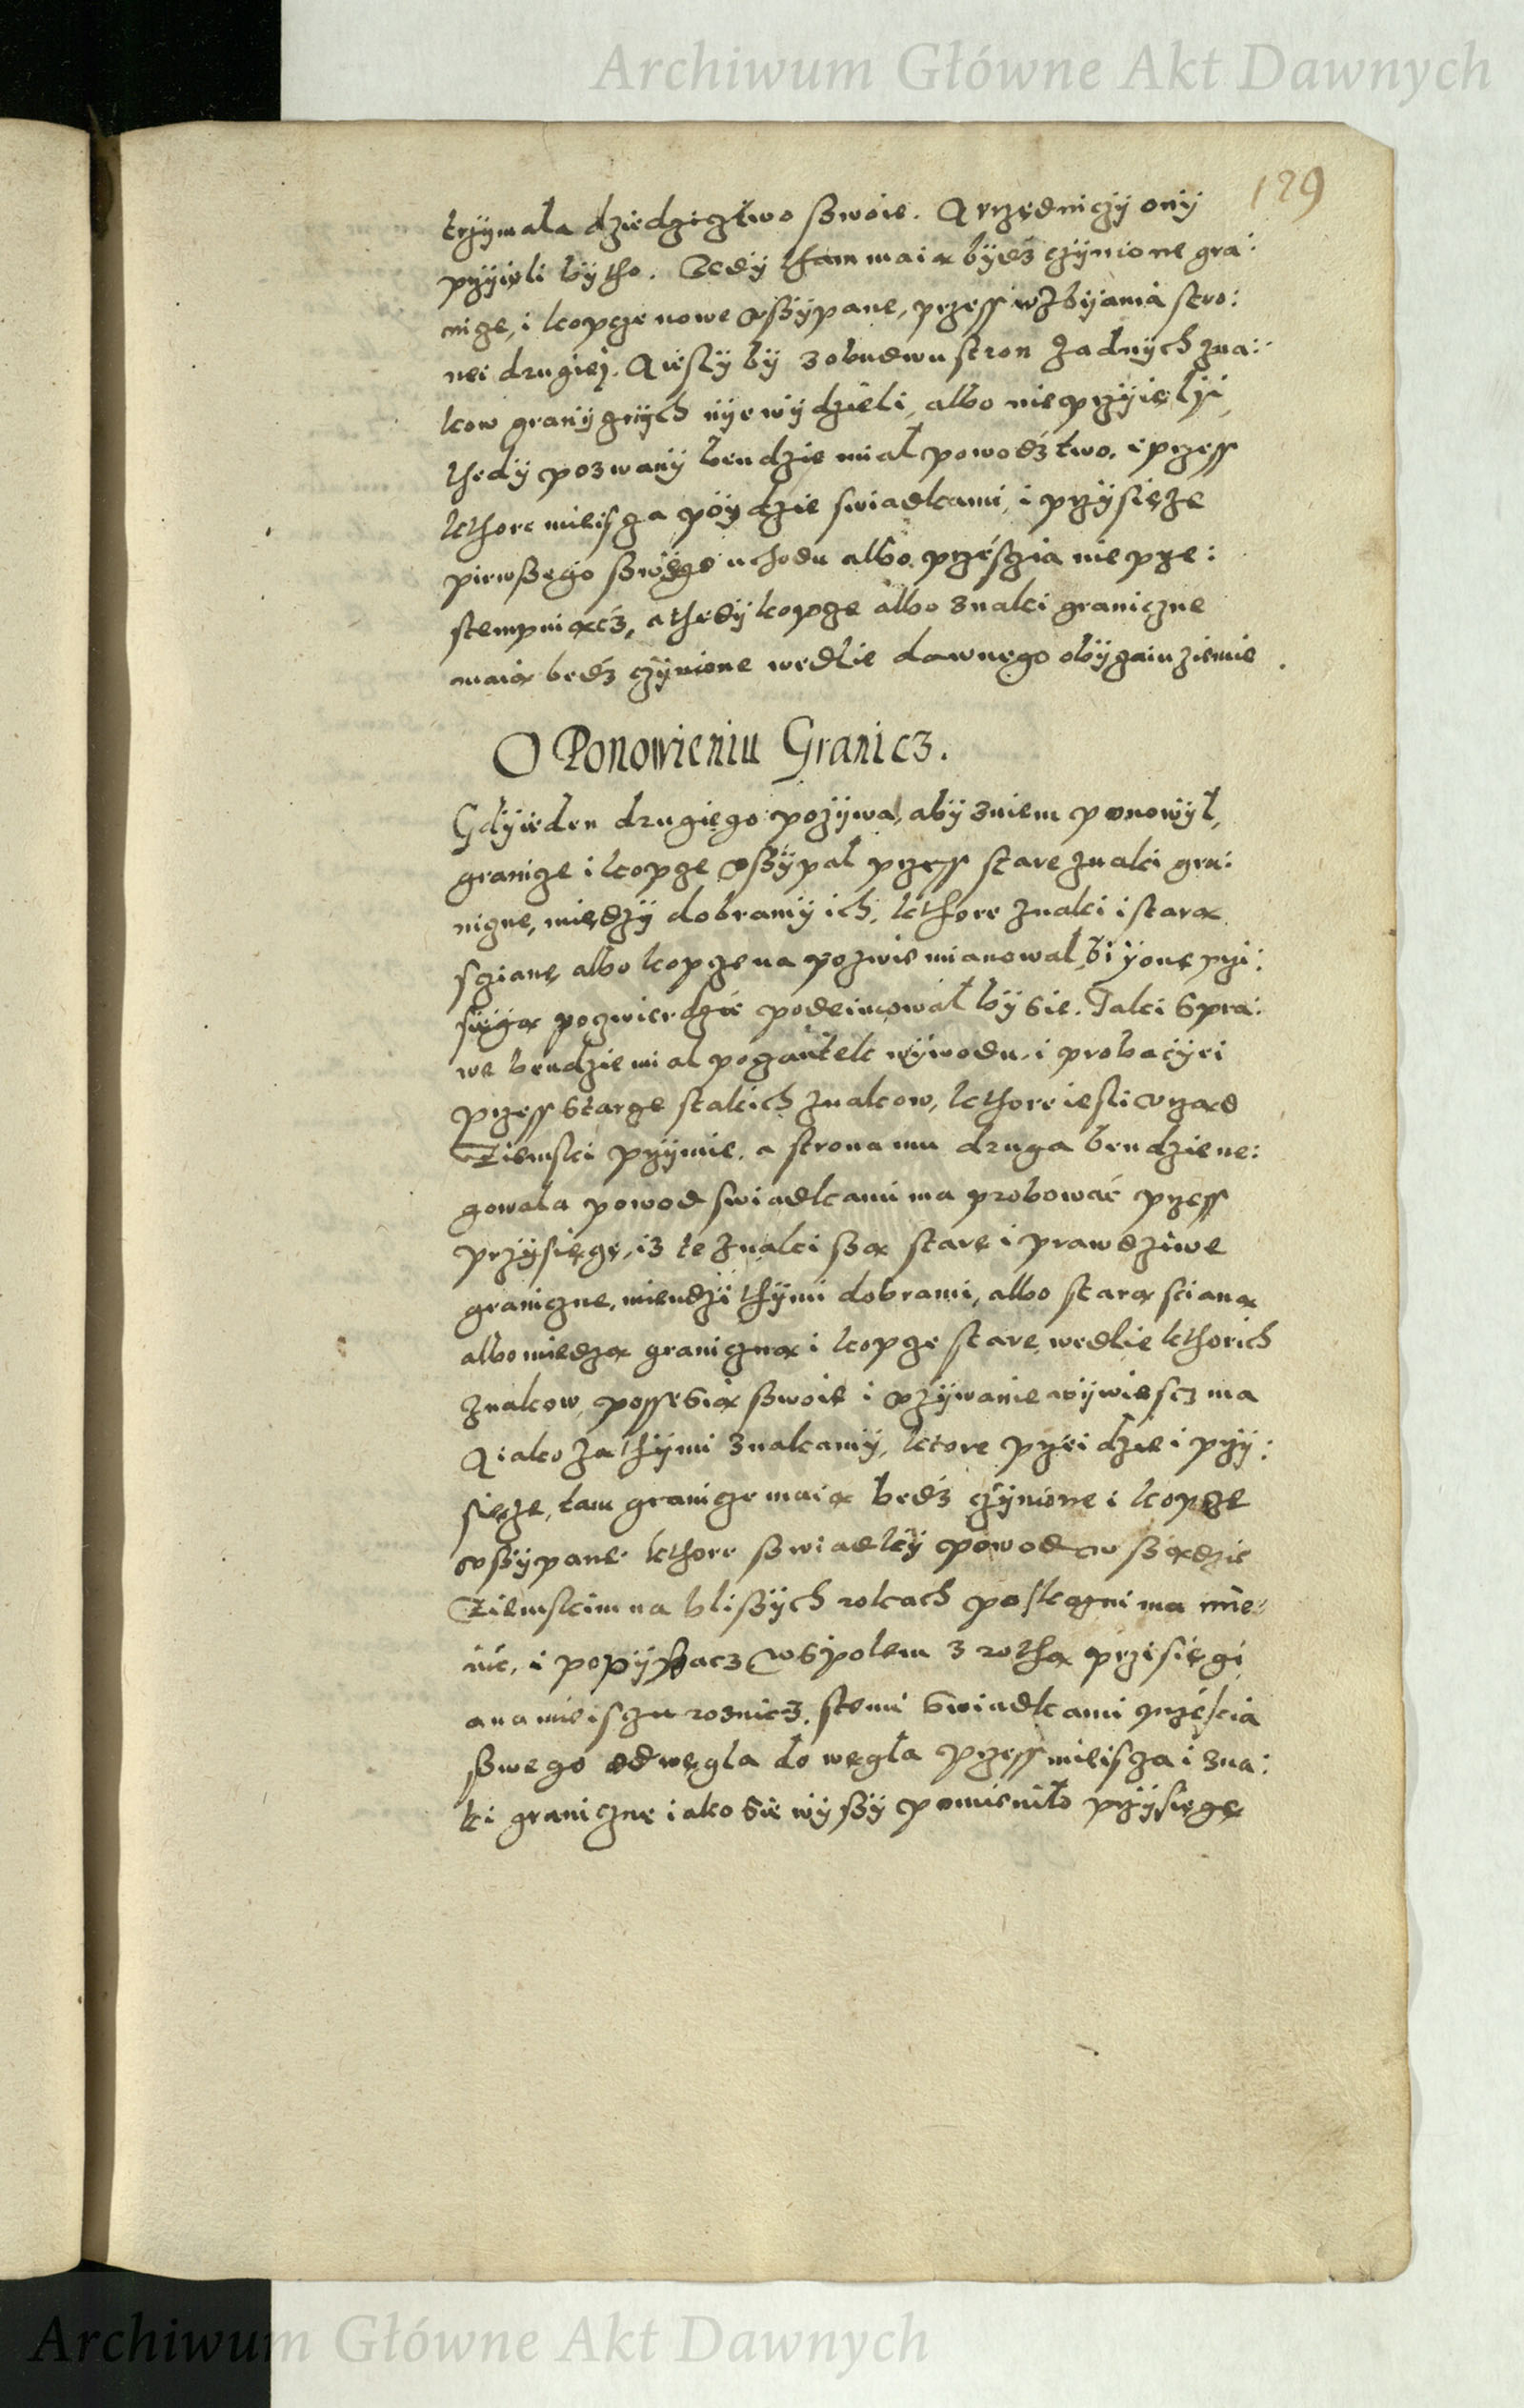 Archiwum Główne Akt Dawnych
129
trzymala dziedzicztwo swoie. A vrzędniczy ony
przyięli by tho. Tedy tham maia bydź czynione gra:
nicze, i kopcze nowe vsypane, przess wzbijania stro:
nei drugiej. A iesly by z obudwu stron żadnych zna:
kow granycznych nye wydzieli, albo nieprzyięlji,
thedy pozwany bendzie miał powodztwo. e przess
kthore mieiscza poydzie swiadkami, i przysięże
pirwszego swego uchodu albo prześczia nie prze:
stempuiącz, a thedy kopcze albo znaki graniczne
maia bedź czynione wedlie dawnego obyczaiu ziemie
O Ponowieniu Granicz.
Gdy ieden drugiego pozywa, aby z niem ponowył,
granicze i kopcze vsypal przess stare znaki gra:
niczne, między dobramy ich, kthore znaki i stara
scianę albo kopcze na pozwie mianowal, bi yone przi:
sięga pozwierdzic podeimowal by sie. Taki spra:
we bendzie mial początek wywodu. i probacyei
przess starze stakich znakow, kthore iesli vrząd
Ziemski przymie. a strona mu druga bendzie ne:
gowala powod swiadkami ma probować przess
przysięgę, iz te znaki są stare i prawdziwe
graniczne, miendzi thymi dobrami, albo stara sciana
albo miedza graniczna i kopcze stare, wedlie kthorich
znakow, possesia swoie i vzywanie wywiescz ma
A iako za thymi znakamy, ktore przeidzie i przy:
sięże, tam granicze maia bedź czynione i kopcze
vsypane. kthore swiadky powod w sądzie
Ziemskim na bliszych rokach po skargni ma mie:
nić, i popysacz wspolem z rotha przisięgi
a na mieisczu roznicz. stemi swiadkami przescia
swego od węgla do węgła przess mieiscza i zna:
ki graniczne iako sie wyszy pomienilo przysięgę
Archiwum Główne Akt Dawnych